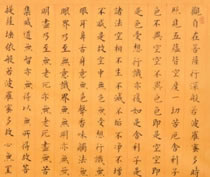 觀自在菩薩行深般若波羅蜜多時
照見五蘊皆空度一切苦厄舍利子
色不異空空不異色色即是空空即
是色受想行識亦復如是舍利子是
諸法空相不生不滅不垢不淨不增
不減是故空中無色無受想行識無
眼耳鼻舌身意無色聲香味觸法無
眼界乃至無意識界無無明亦無無
明盡乃至無老死亦無老死盡無苦
集滅道無智亦無得以無所得故菩
提薩埵依般若波羅蜜多故心無罣